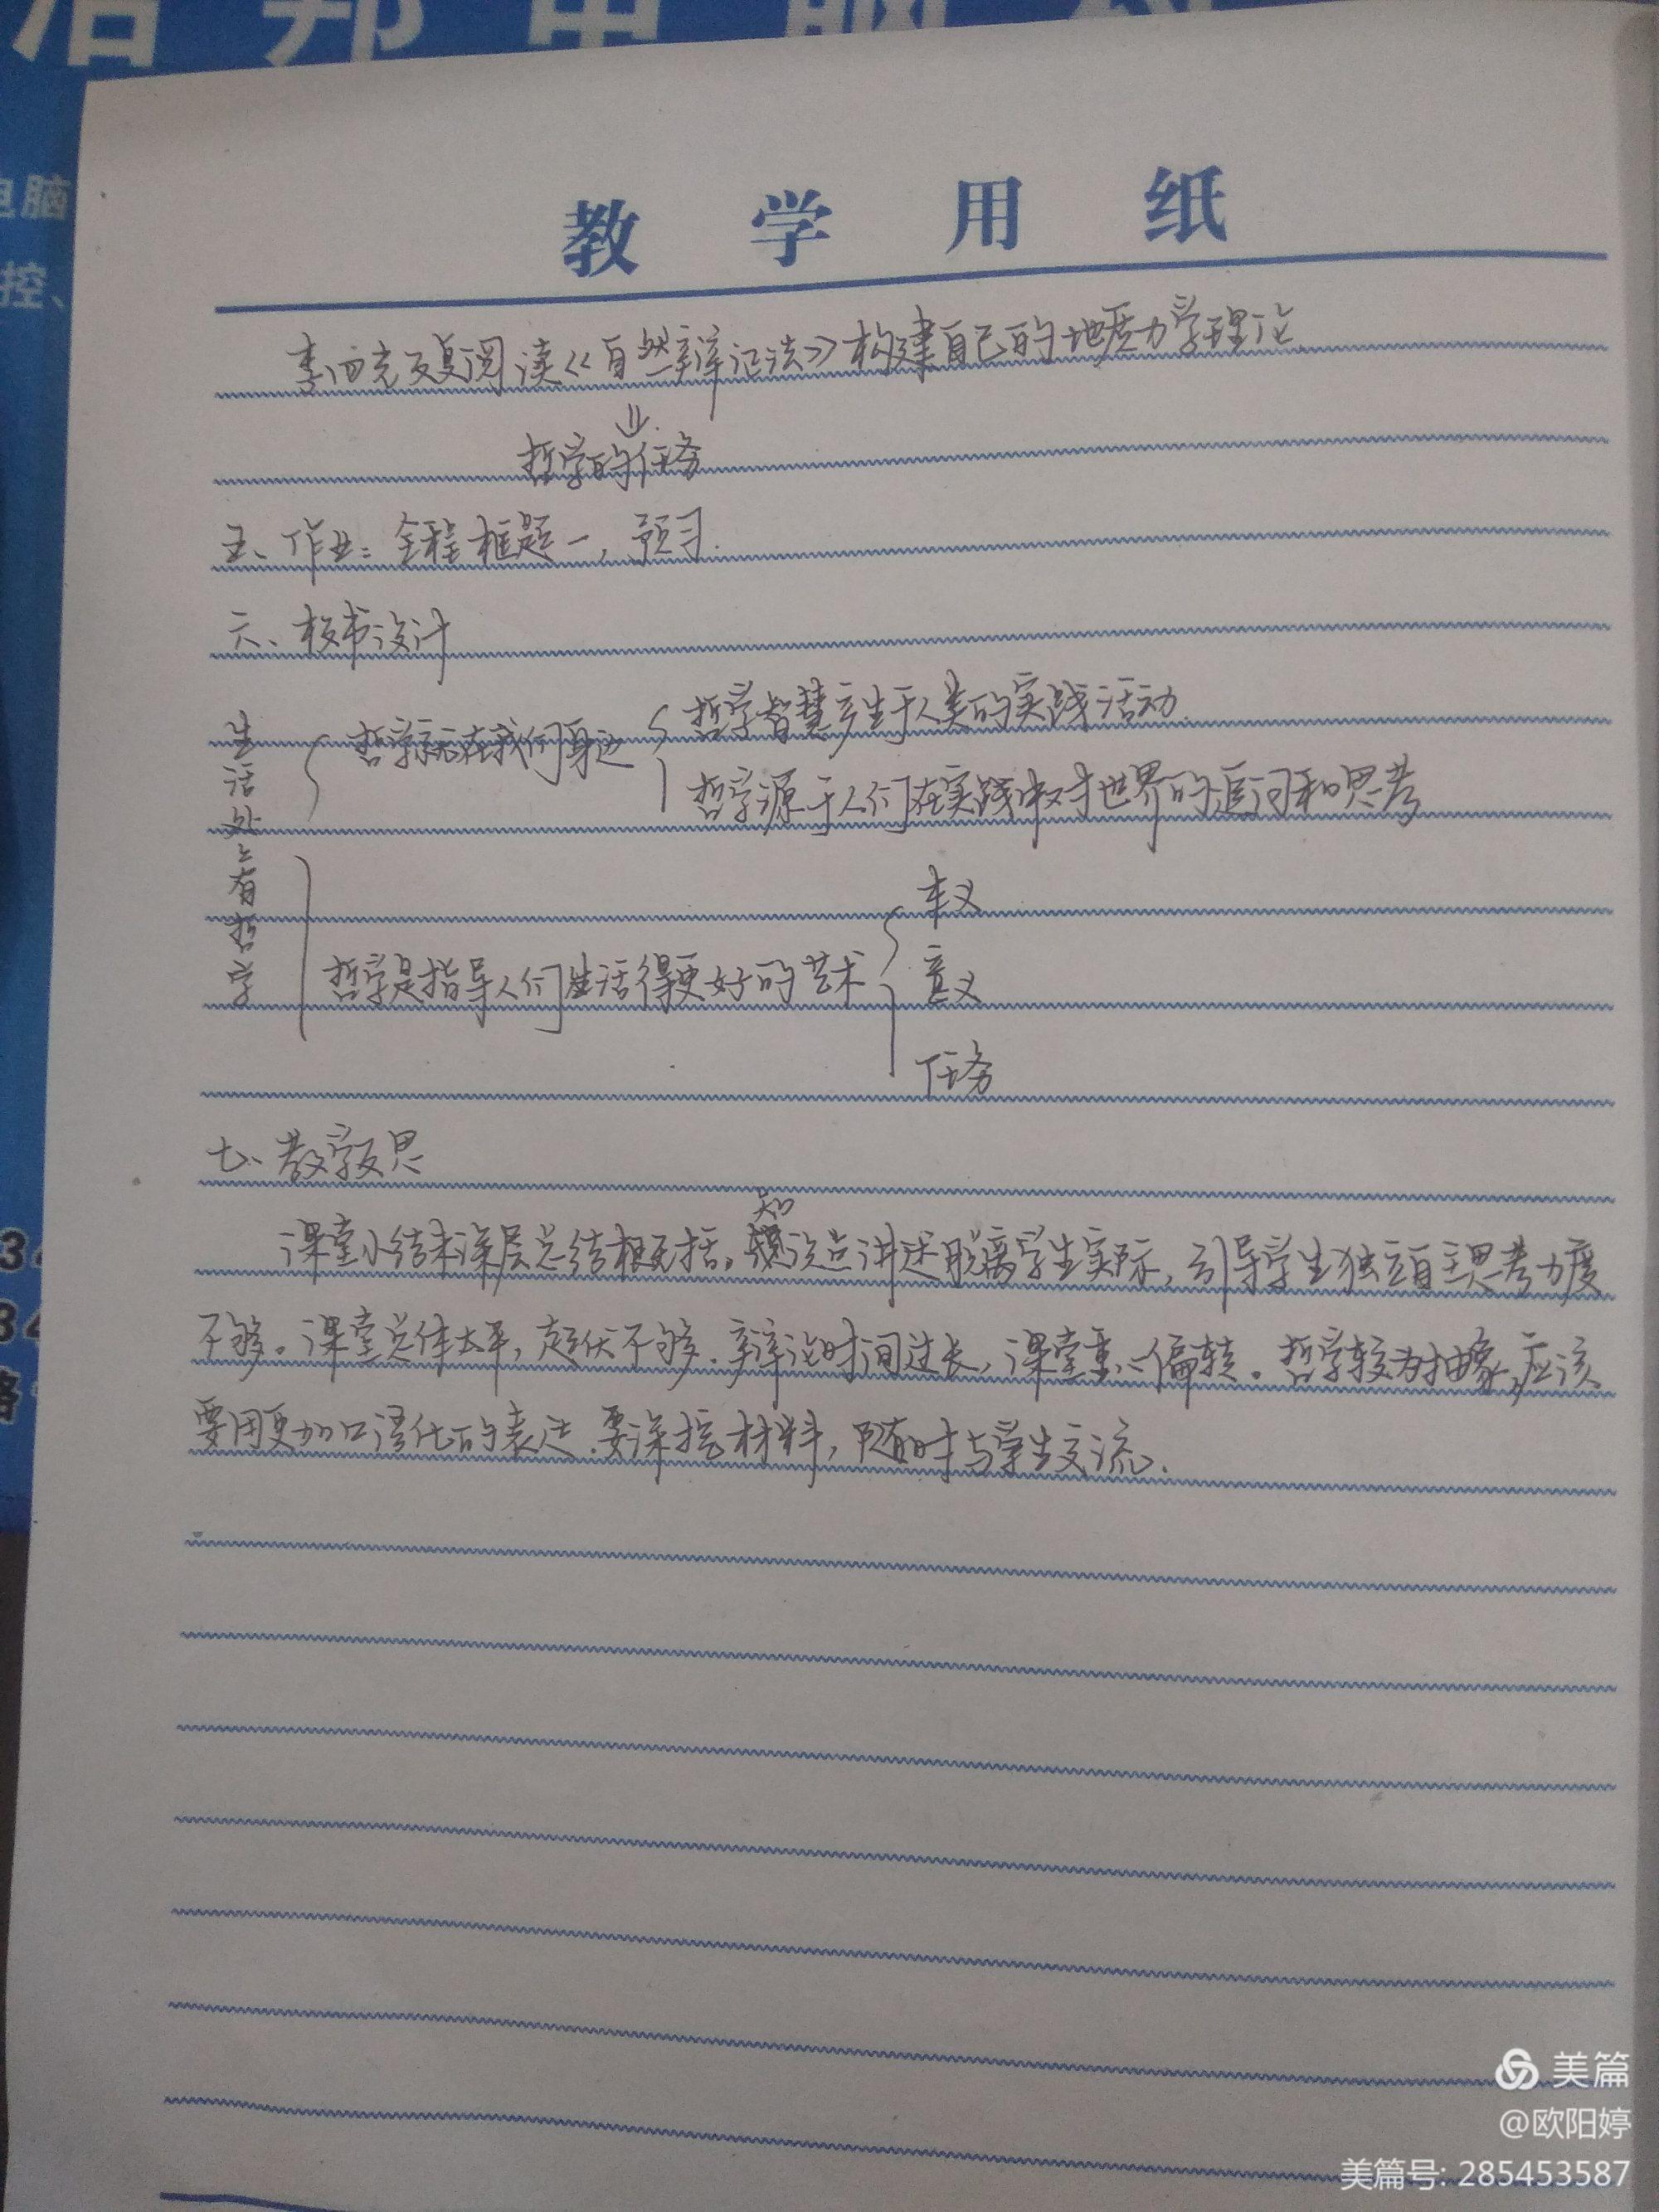 治邦电脑
电脑
控、
教学用纸
李四光反复阅读《自然辩证法》构建自己的地质力学理论.
⇓
哲学的任务
五、作业：全程框题一，预习.
六、板书设计
生活处处有哲学
哲学就在我们身边
哲学智慧产生于人类的实践活动.
哲学源于人们在实践中对世界的追问和思考
哲学是指导人们生活得更好的艺术
本义
意义
任务
七、教学反思
课堂小结未深层总结概括。知识点讲述脱离学生实际，引导学生独立自主思考力度
不够。课堂总体太平，起伏不够.辩论时间过长，课堂重心偏转。哲学较为抽象，应该
要用更加口语化的表达.要深挖材料，随时与学生交流.
美篇
@欧阳婷
美篇号: 285453587